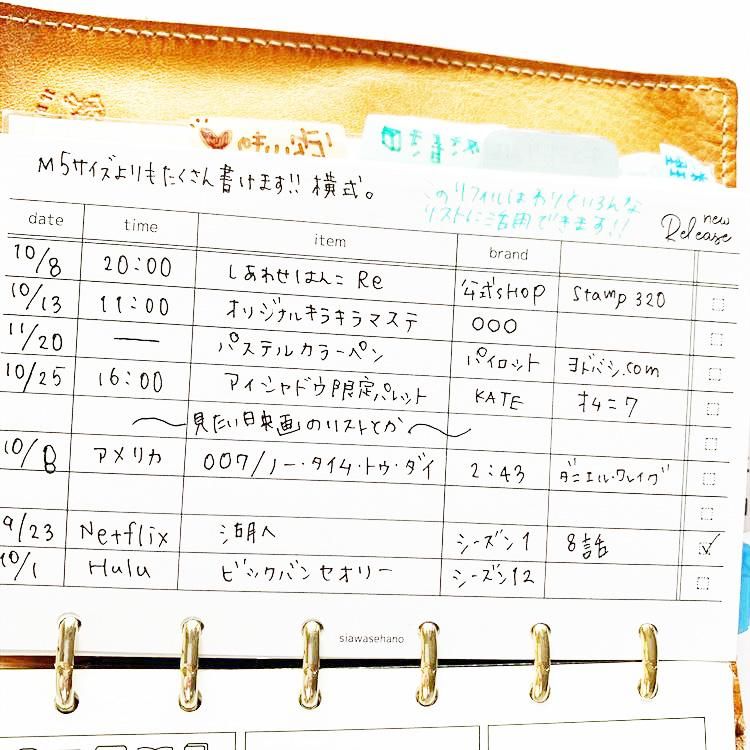 M5サイズよりもたくさん書けます!! 横式。
このリフィルはわりといろんな
リストに活用できます!!
new
Release
date time item brand
10/8 20:00 しあわせはんこ Re 公式SHOP Stamp 320
10/13 11:00 オリジナルキラキラマステ 〇〇〇
11/20 — パステルカラーペン パイロット ヨドバシ.com
10/25 16:00 アイシャドウ限定パレット KATE オムニ7
〜見たい映画のリストとか〜
10/8 アメリカ 007/ノー・タイム・トゥ・ダイ 2:43 ダニエル・クレイグ
9/23 Netflix シーズン1 8話
10/1 Hulu ビックバンセオリー シーズン12
siawasehano